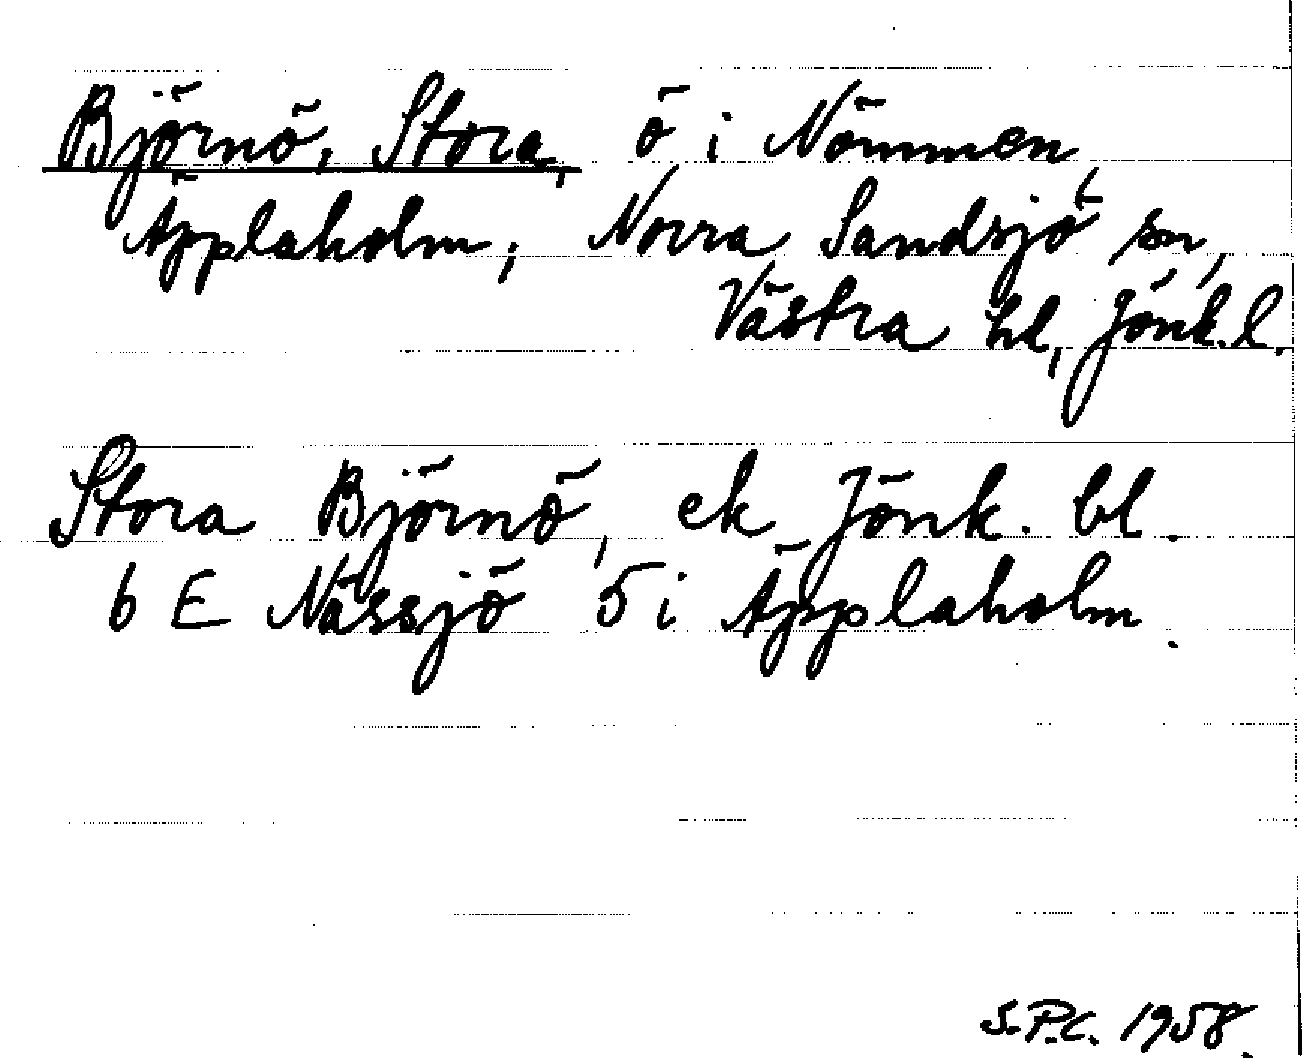 Björnö, Stora, ö i Nömmen,
Äpplaholm, Norra Sandsjö sn,
Västra hd, Jönk. l.
Stora Björnö, ek Jönk. bl.
6 E Nässjö 5 i Äpplaholm.
S.P.C. 1958.